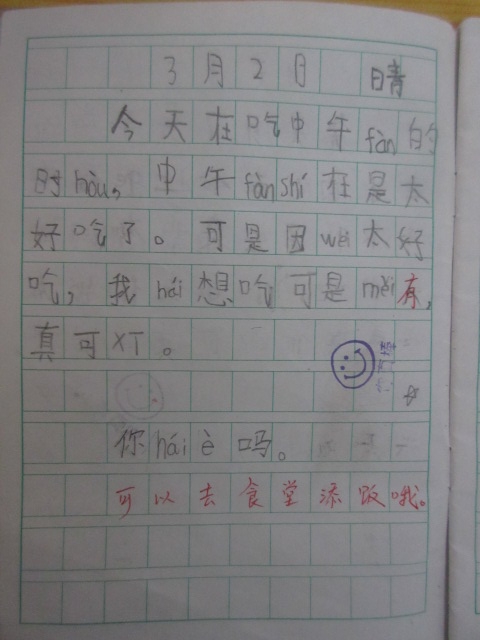 3月2日 晴
今天在吃中午fàn的
时hòu，中午fàn shí在是太
好吃了。可是因wèi太好
吃，我hái想吃可是méi有，
真可xī。
你hái è吗。
可以去食堂添饭哦。